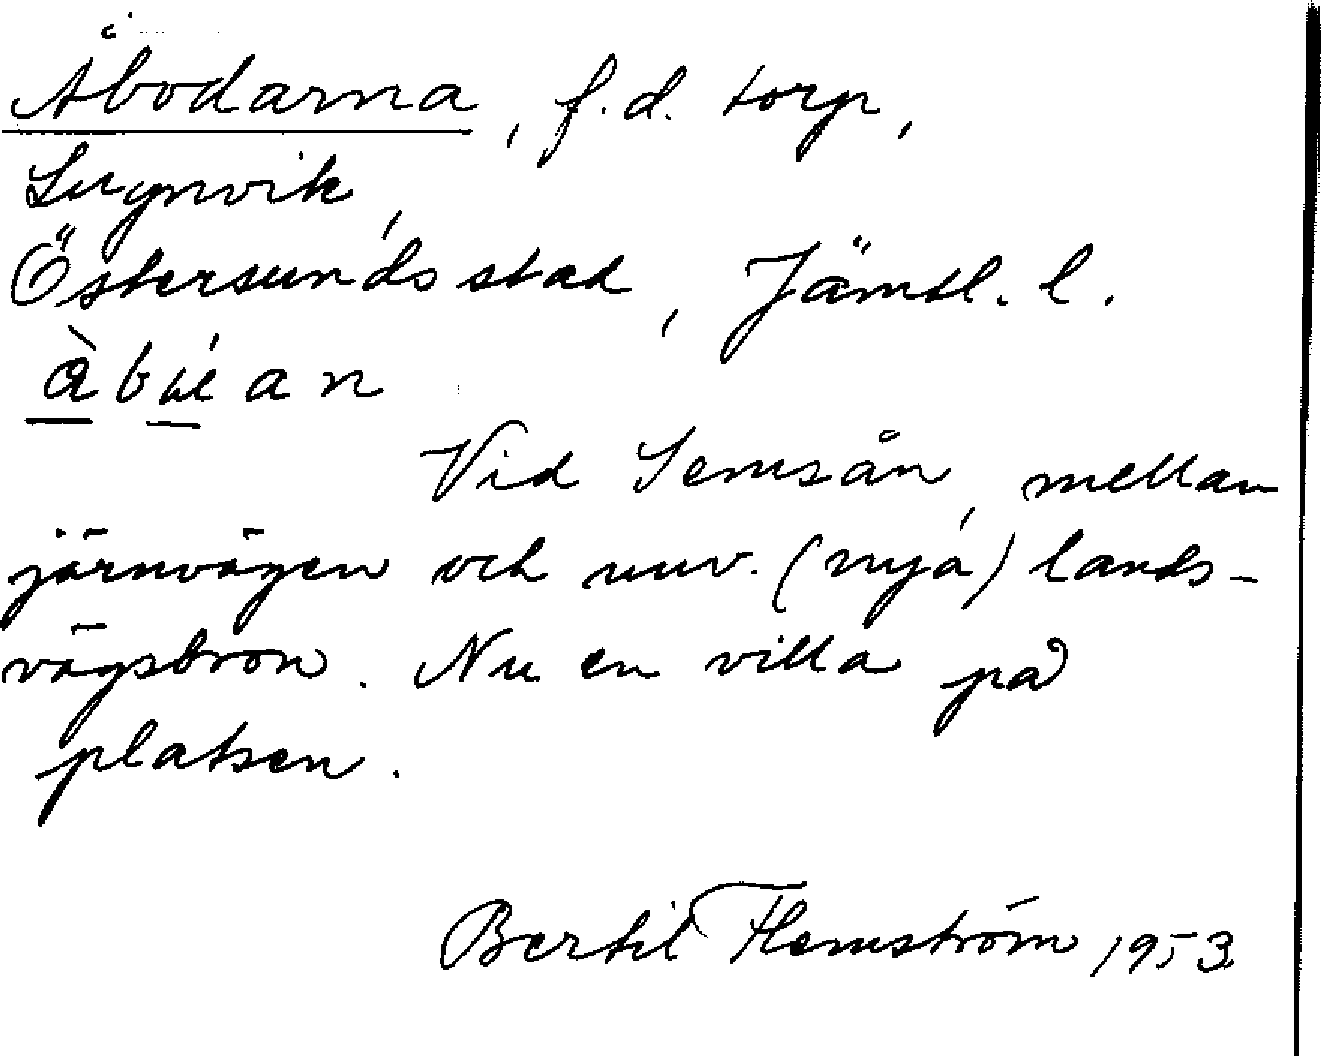 Åbodarna, f.d. torp,
Lugnvik,
Östersunds stad, Jämtl. l.
Vid Semsån, mellan
järnvägen och nuv. (nya) lands-
vägsbron. Nu en villa på
platsen.
Bertil Flemström 1953